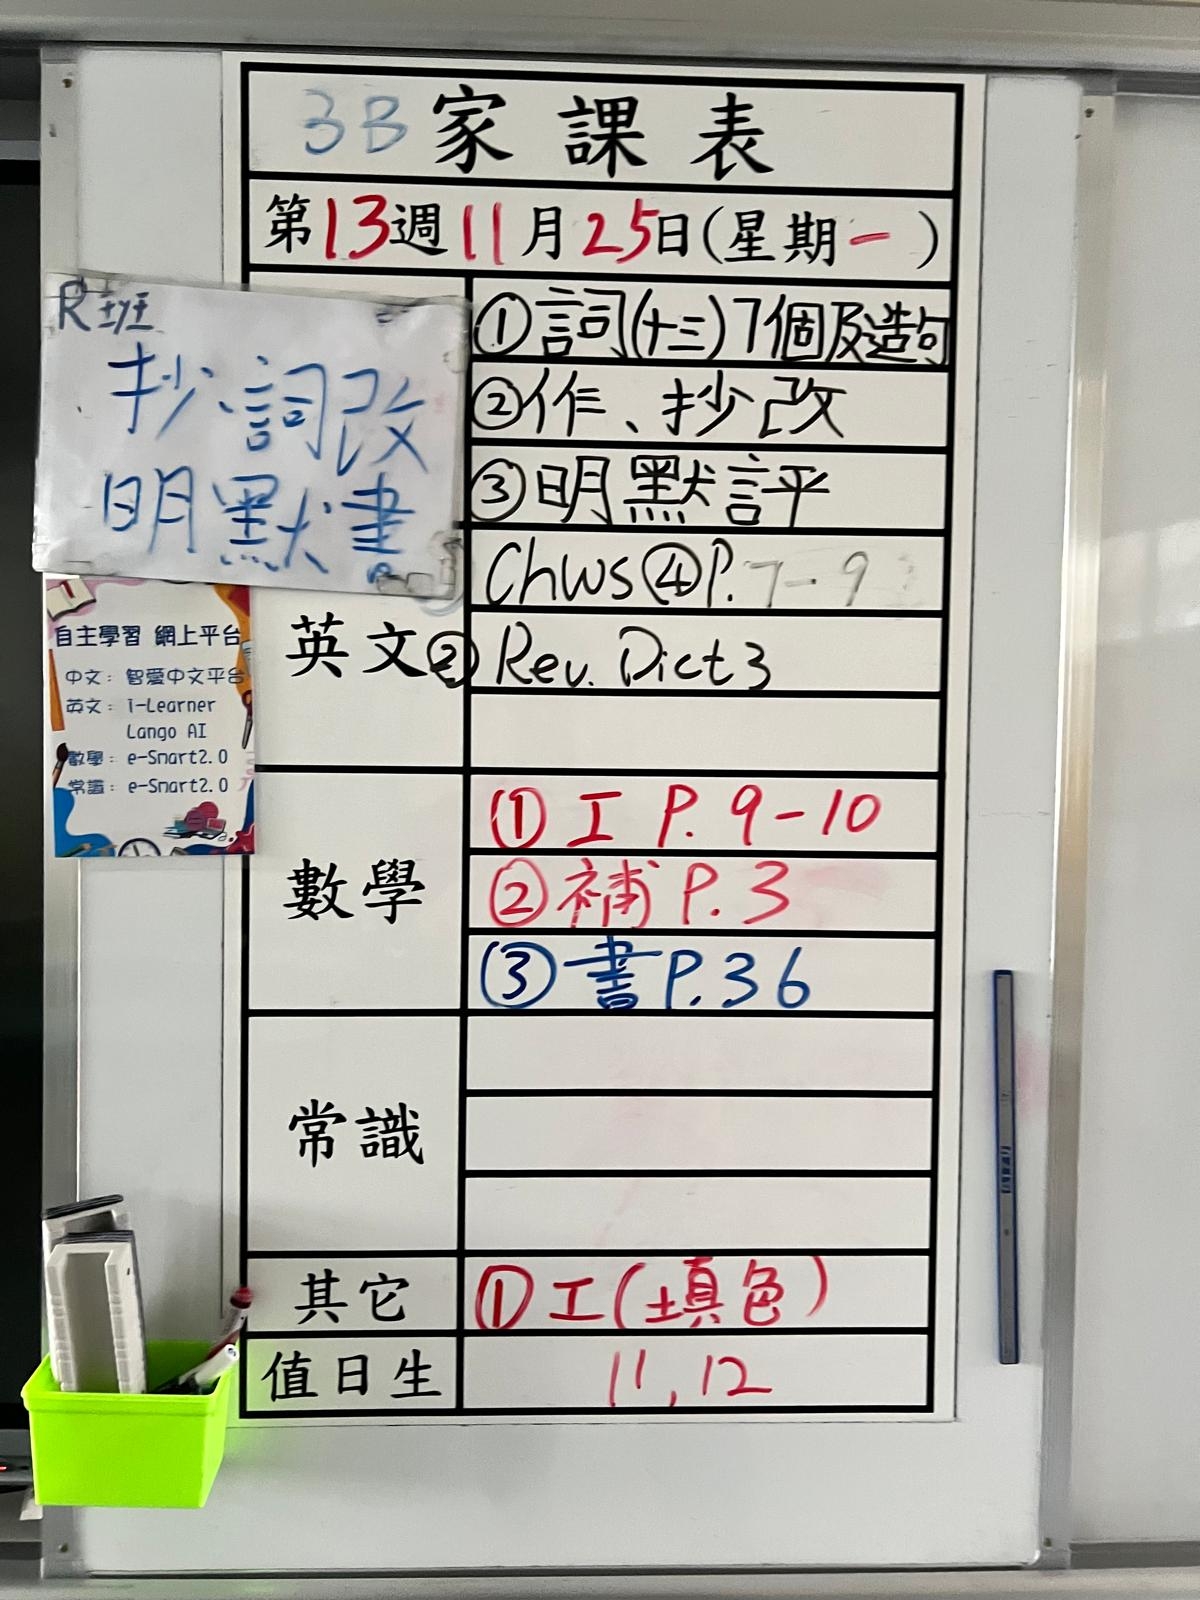 3B 家課表
第13週11月25日(星期一)
R班
抄、詞改
明默書
①詞(十三)7個及造句
②作、抄改
③明默評
英文
Chws④P.7-9
②Rev. Dict 3
自主學習 網上平台
中文：智愛中文平台
英文：i-Learner
Lango AI
數學：e-Smart2.0
常識：e-Smart2.0
數學
①工 P.9-10
②補 P.3
③書 P.36
常識
其它
①工(填色)
值日生
11,12